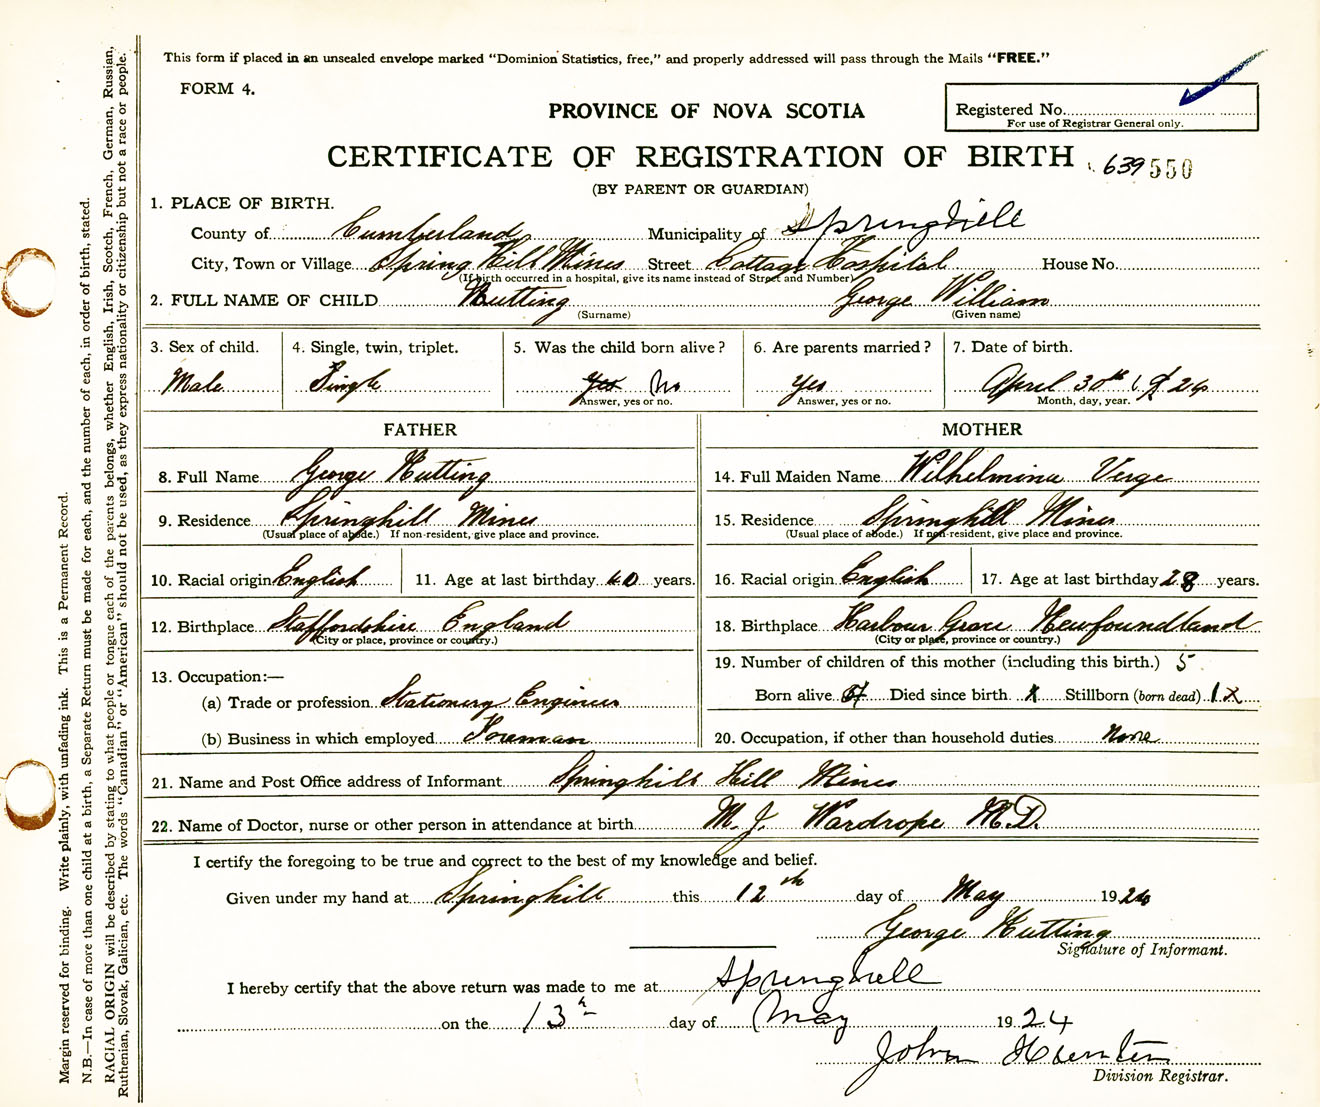 This form if placed in an unsealed envelope marked "Dominion Statistics, free," and properly addressed will pass through the Mails "FREE."
FORM 4.
PROVINCE OF NOVA SCOTIA
Registered No.
For use of Registrar General only.
CERTIFICATE OF REGISTRATION OF BIRTH 639 550
(BY PARENT OR GUARDIAN)
1. PLACE OF BIRTH.
County of Cumberland Municipality of Springhill
City, Town or Village Spring Hill Mines Street Cottage Hospital House No.
(If birth occurred in a hospital, give its name instead of Street and Number)
2. FULL NAME OF CHILD Nutting George William
(Surname) (Given name)
3. Sex of child. 4. Single, twin, triplet. 5. Was the child born alive? 6. Are parents married? 7. Date of birth.
Male Single Yes No Yes April 30th 1924
Answer, yes or no. Answer, yes or no. Month, day, year.
FATHER MOTHER
8. Full Name George Nutting 14. Full Maiden Name Wilhelmina Verge
9. Residence Springhill Mines 15. Residence Springhill Mines
(Usual place of abode.) If non-resident, give place and province. (Usual place of abode.) If non-resident, give place and province.
10. Racial origin English 11. Age at last birthday 40 years. 16. Racial origin English 17. Age at last birthday 28 years.
12. Birthplace Staffordshire England 18. Birthplace Harbour Grace Newfoundland
(City or place, province or country.) (City or place, province or country.)
13. Occupation:— 19. Number of children of this mother (including this birth.) 5
(a) Trade or profession Stationery Engineer Born alive Died since birth Stillborn (born dead) 1 x
(b) Business in which employed Foreman 20. Occupation, if other than household duties None
21. Name and Post Office address of Informant Springhill Hill Mines
22. Name of Doctor, nurse or other person in attendance at birth M. J. Wardrope M.D.
I certify the foregoing to be true and correct to the best of my knowledge and belief.
Given under my hand at Springhill this 12th day of May 1924
George Nutting
Signature of Informant.
I hereby certify that the above return was made to me at Springhill
on the 13th day of May 1924
John
Division Registrar.
Margin reserved for binding. Write plainly, with unfading ink. This is a Permanent Record.
N.B.—In case of more than one child at a birth, a Separate Return must be made for each, and the number of each, in order of birth, stated.
RACIAL ORIGIN will be described by stating to what people or tongue each of the parents belongs, whether English, Irish, Scotch, French, German, Russian,
Ruthenian, Slovak, Galician, etc. The words "Canadian" or "American" should not be used, as they express nationality or citizenship but not a race or people.